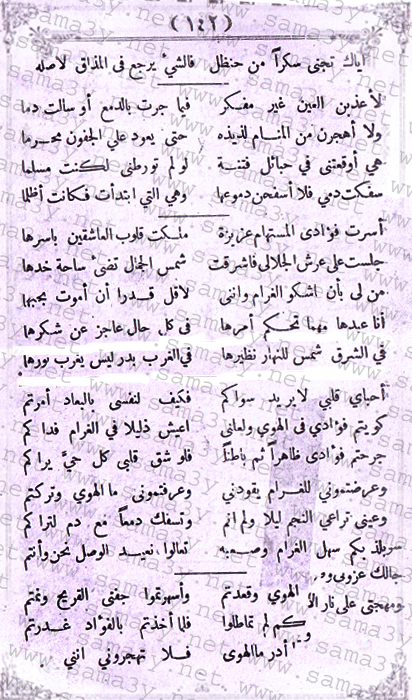 (١٤٢)
اياك تجنى سكراً من حنظل فالشيء يرجع فى المذاق لاصله
لأعذبن العين غير مفكر فيما جرت بالدمع أو سالت دما
ولا أهجرن من المنام لذيذه حتى يعود على الجفون محرما
هي أوقعتنى في حبائل فتنة لو لم تورطنى لكنت مسلما
سفكت دمي فلا أسفحن دموعها وهي التي ابتدأت فكانت أظلما
أسرت فؤادى المستهام عزيزة ملكت قلوب العاشقين باسرها
جلست على عرش الجلال فاشرقت شمس الجمال تضئ ساحة خدها
من لى بأن اشكو الغرام واننى لاقل قدرا أن أموت بحبها
أنا عبدها مهما تحكم أمرها فى كل حال عاجز عن شكرها
في الشرق شمس للنهار نظيرها في الغرب بدر ليس يغرب نورها
أحباي قلبي لا يريد سواكم فكيف لنفسى بالبعاد أمرتم
كويتم فؤادى فى الهوي ولماني اعيش ذليلا في الغرام فداكم
جرحتم فؤادى ظاهراً ثم باطناً فلو شق قلبى كل حيّ يراكم
وعرضتمونى للغرام يقودني وعرفتمونى ما الهوي وتركتم
وعينى تراعي النجم ليلا ولم انم وتسفك دمعاً مع دم لتراكم
بكم سهل الغرام وصعبه تعالوا نعيد الوصل نحن وأنتم
الهوي وقعدتم وأسهرتموا جفنى القريح ونمتم
ومهجتى على نار كم لم تماطلوا فلما أخذتم بالفؤاد غدرتم
أدر ما الهوى فلا تهجروني اننى
www.sama3y.net